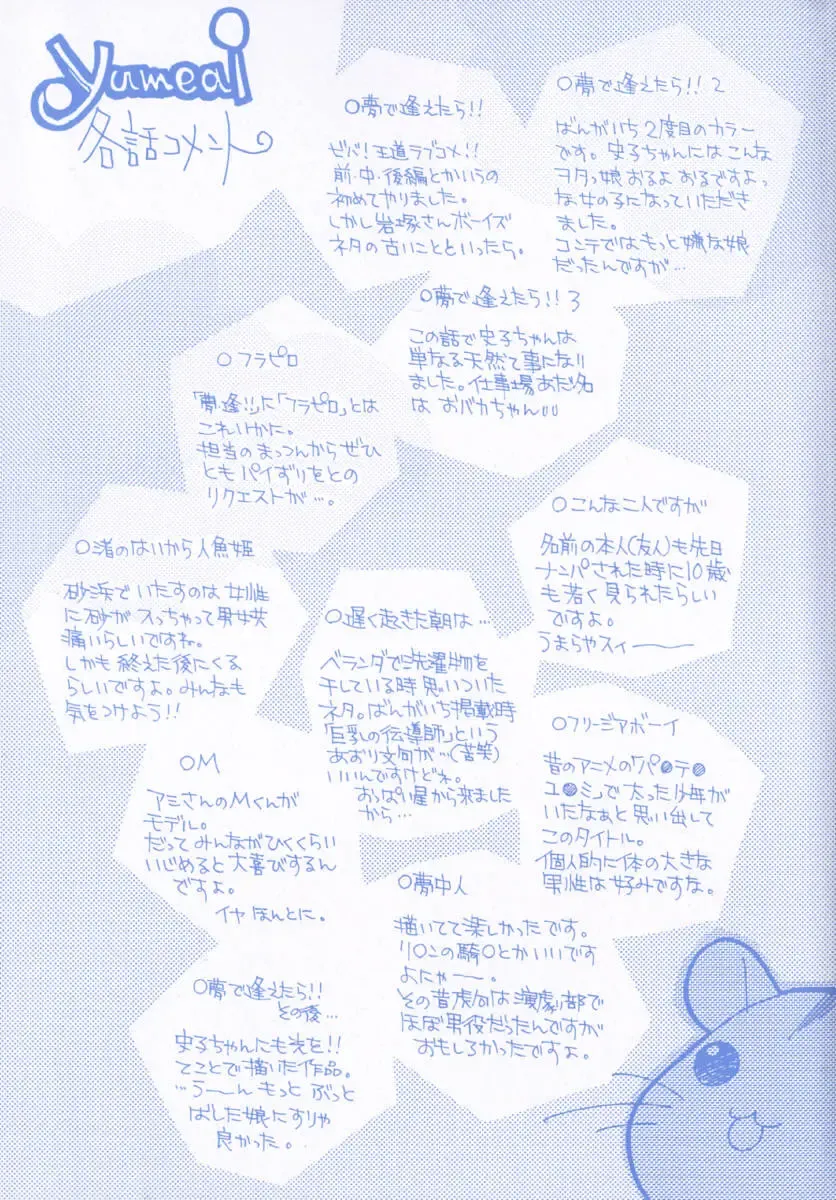 yumeai
各話コメント
○夢で逢えたら!!
ビバ!王道ラブコメ!!
前・中・後編とかいうの
初めてやりました。
しかし岩塚さんボーイズ
ネタの古いことといったら。
○夢で逢えたら!! 2
ばんがいち2度目のカラー
です。史子ちゃんにはこんな
ヲタっ娘おるよおるですよっ
な女の子になっていただき
ました。
コンテではもっと嫌な娘
だったんですが…
○夢で逢えたら!! 3
この話で史子ちゃんは
単なる天然て事になり
ました。仕事場あだ名
は おバカちゃん
○フラピロ
「夢・逢!!」に「フラピロ」とは
これいかに。
担当のまっつんからぜひ
ともパイずりをとの
リクエストが…。
○こんな二人ですが
名前の本人(友人)も先日
ナンパされた時に10歳
も若く見られたらしい
ですよ。
うまらやスィー
○渚のはいから人魚姫
砂浜でいたすのは女性
に砂が入っちゃって男女共
痛いらしいですね。
しかも終えた後にくる
らしいですよ。みんなも
気をつけよう!!
○遅く起きた朝は…
ベランダで洗濯物を
干している時思いついた
ネタ。ばんがいち掲載時
「巨乳の伝導師」という
あおり文句が…(苦笑)
いいんですけどね。
おっぱい屋から来ました
から…
○フリージアボーイ
昔のアニメの「パ●テ●
ユ●ミ」で太った少年が
いたなぁと思い出して
このタイトル。
個人的に体の大きな
男性は好みですな。
○M
アミさんのMくんが
モデル。
だってみんながひくくらい
いじめると大喜びするん
ですよ。
イヤ ほんとに。
○夢中人
描いてて楽しかったです。
リ○ンの騎○とかいいです
よにゃー。
その昔虎向は演劇部で
ほぼ男役だったんですが
おもしろかったですよ。
○夢で逢えたら!!
その後…
史子ちゃんにも光を!!
てことで描いた作品。
…うーん もっと ぶっと
ばした娘にすりゃ
良かった。